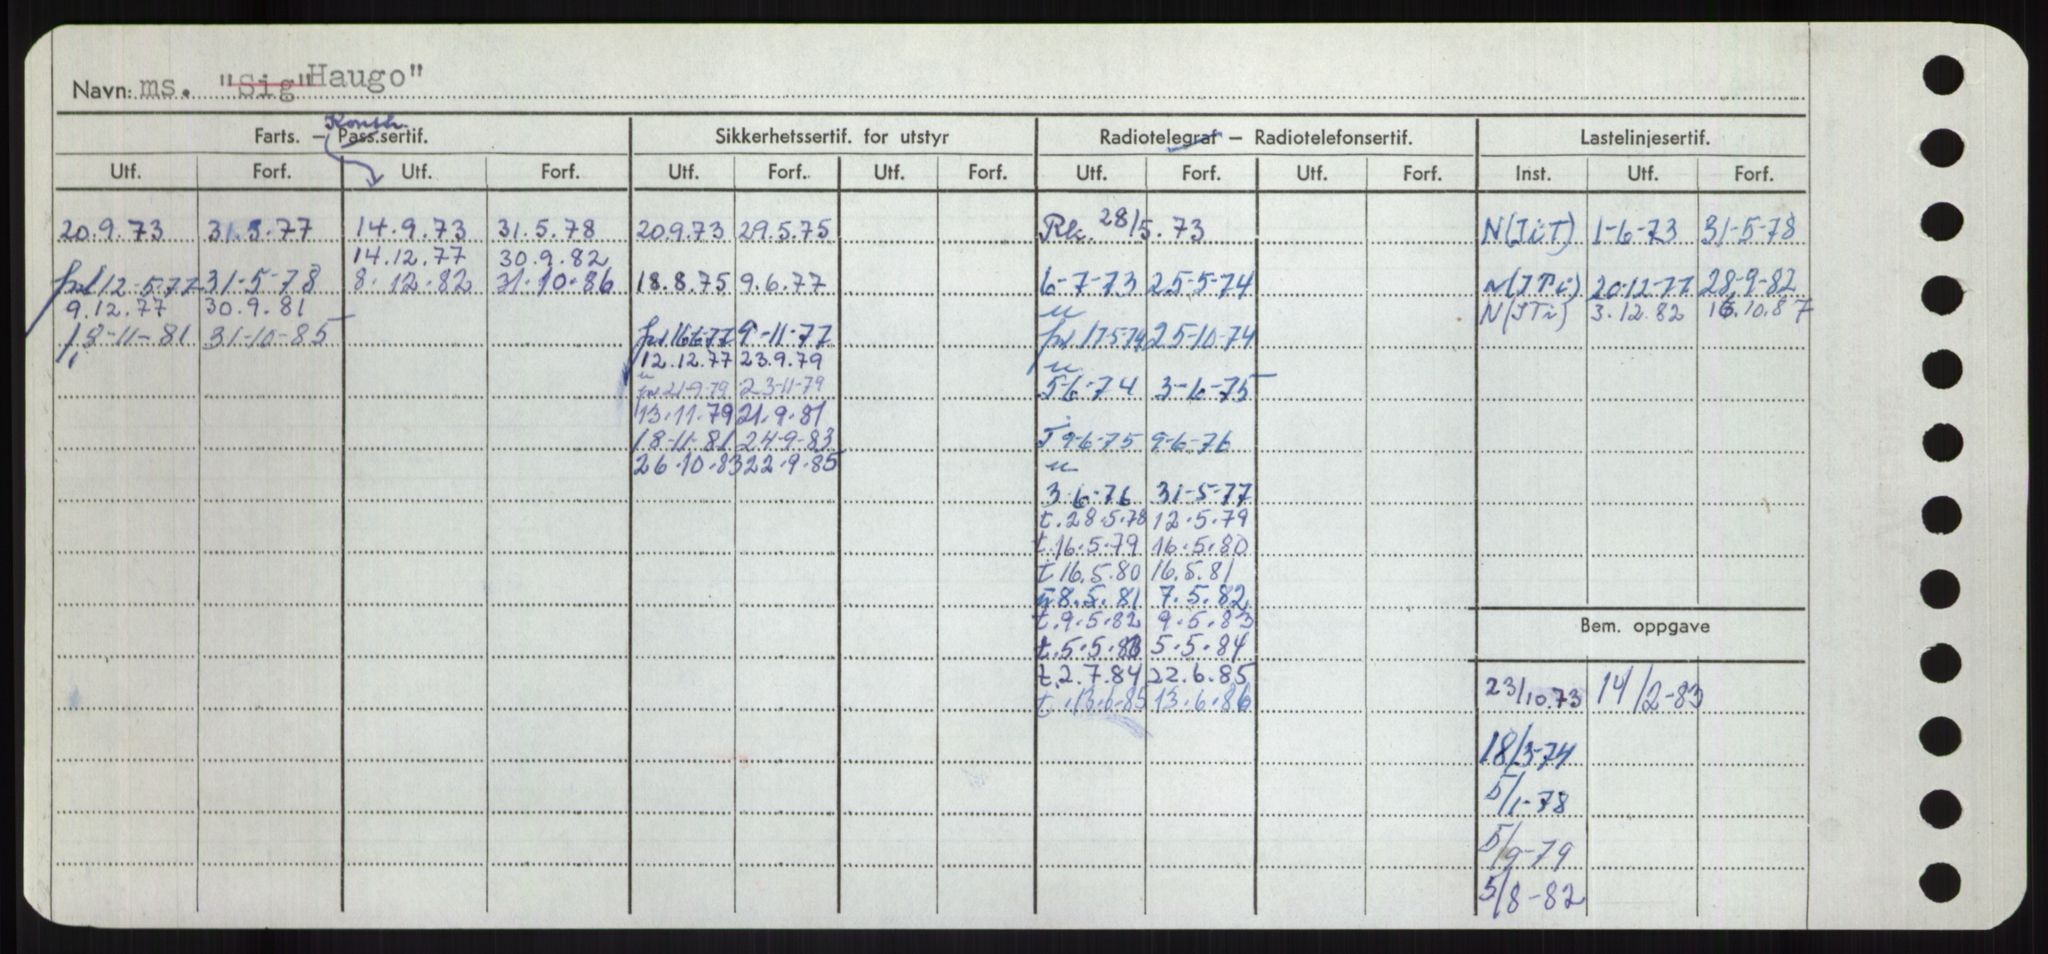 Navn: ms. "Sig" Haugo"
Farts. – Pass.sertif. Konstr. Sikkerhetssertif. for utstyr Radiotelegraf – Radiotelefonsertif. Lastelinjesertif.
Utf. Forf. Utf. Forf. Utf. Forf. Utf. Forf. Utf. Forf. Utf. Forf. Inst. Utf. Forf.
20.9.73 31.5.77 14.9.73 31.5.78 20.9.73 29.5.75 Rk. 28/5.73 N(JiT) 1-6-73 31-5-78
14.12.77 30.9.82
frl 12-5-77 31-5-78 8.12.82 31.10.86 18.8.75 9.6.77 6-7-73 25-5-74 N(JTi) 20-12-77 28-9-82
9.12.77 30.9.81 N(JTi) 3.12.82 16.10.87
18-11-81 31-10-85 frl 16-6-77 9-11-77 frl 17-5-74 25-10-74
12.12.77 23.9.79
frl 21-9-79 23-11-79 5-6-74 3-6-75
13.11.79 21.9.81
18-11-81 24-9-83 T 9-6-75 9-6-76
26.10.83 22.9.85
3.6-76 31-5-77
t.28.5.78 12.5.79
t.16.5.79 16.5.80
t 16.5.80 16.5.81
8.5.81 7.5.82
t.9.5.82 9.5.83
Bem. oppgave
t.5.5.83 5.5.84
t.2.7.84 22.6.85
t.13.6.85 13.6.86
23/10.73 14/2-83
18/3-74
5/1-78
5/9-79
5/8-82